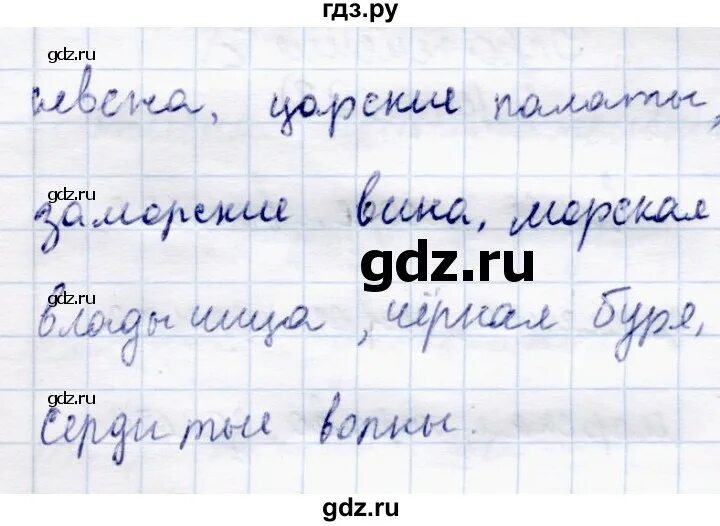 гдз.ру
gdz.ru
царские палаты,
gdz.ru
заморские вина, морская
gdz.ru
gdz.ru
владычица, чёрная буря,
gdz.ru
Сердитые волны.
gdz.ru